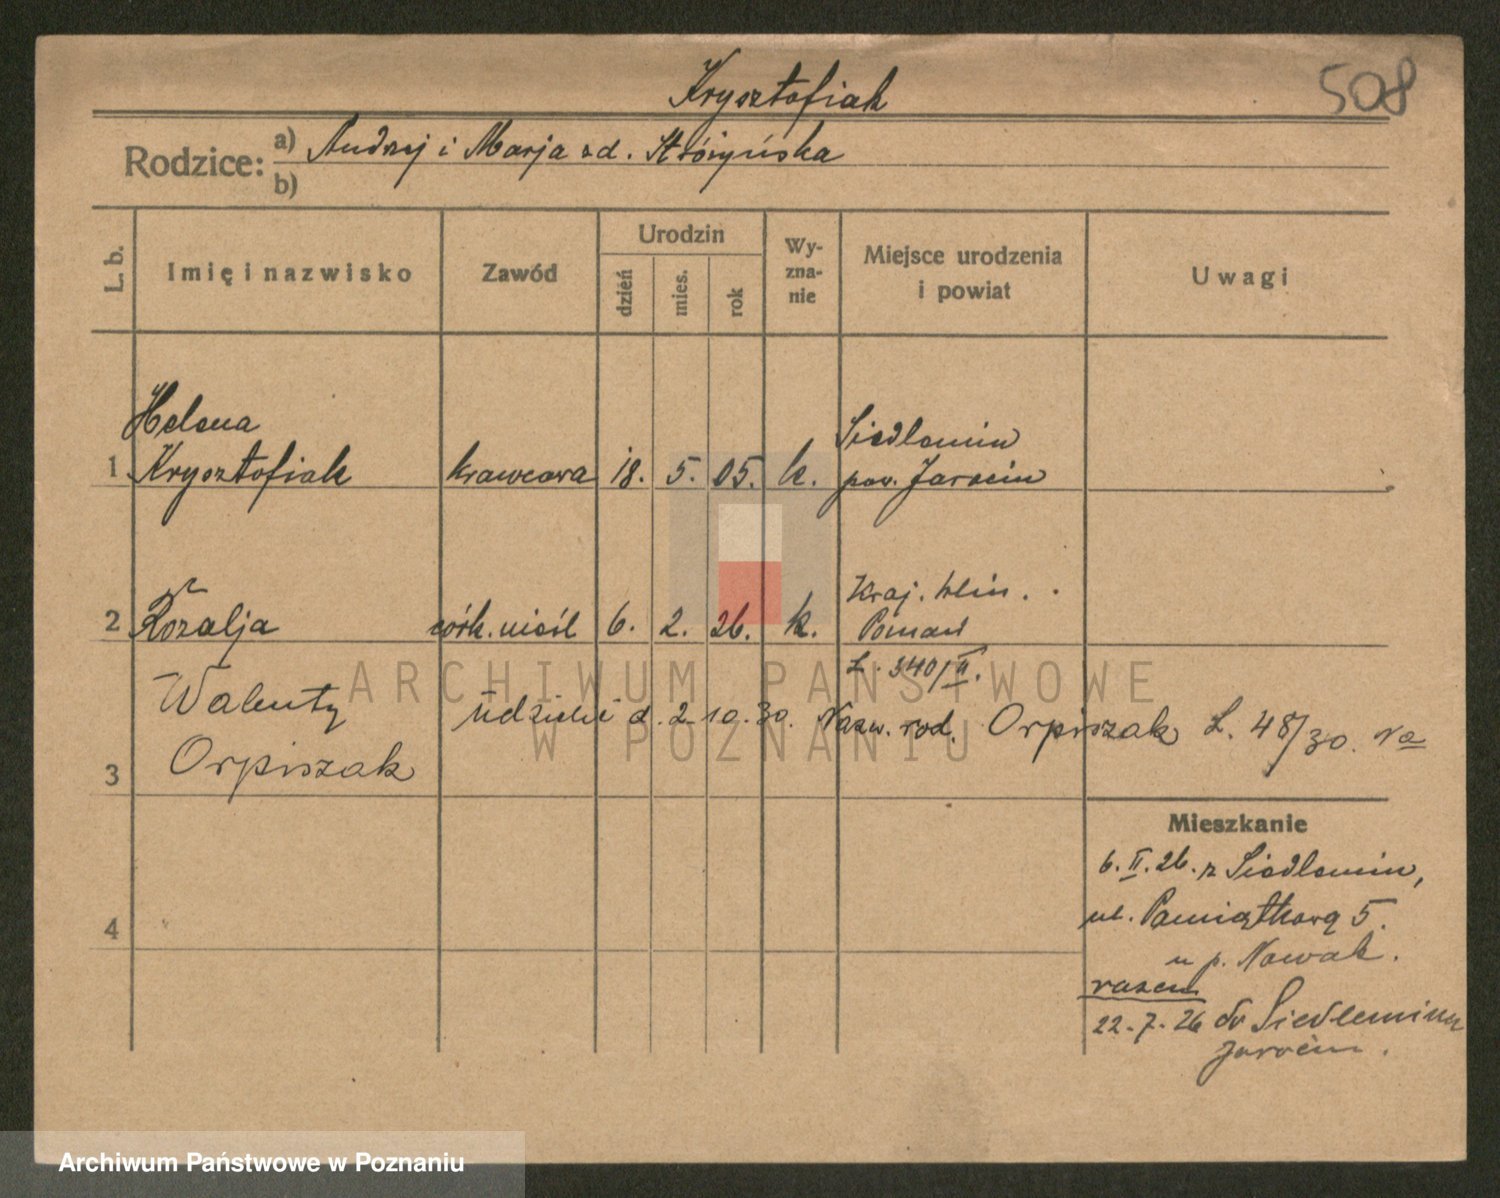 Krysztofiak
508
Rodzice: a) Andrzej i Marja zd. Stróżyńska
b)
L. b.
Imię i nazwisko
Zawód
Urodzin
dzień
mies.
rok
Wy-
zna-
nie
Miejsce urodzenia
i powiat
Uwagi
Helena
Siedlemin
1 Krysztofiak krawcowa 18. 5. 05. k. pow. Jarocin
Kraj. klin.
2 Rozalja córk. nieśl 6. 2. 26. k. Poznań
L. 340/II.
Walenty udzielić d. 2.10.30. Nazw. rod. Orpiszak L. 48/30.
3 Orpiszak
Mieszkanie
6.II.26. z Siedlemin,
4 ul. Pamiątkowa 5.
u p. Nowak.
razem
22-7-26 do Siedlemina
Jarocin.
ARCHIWUM PAŃSTWOWE
W POZNANIU
Archiwum Państwowe w Poznaniu